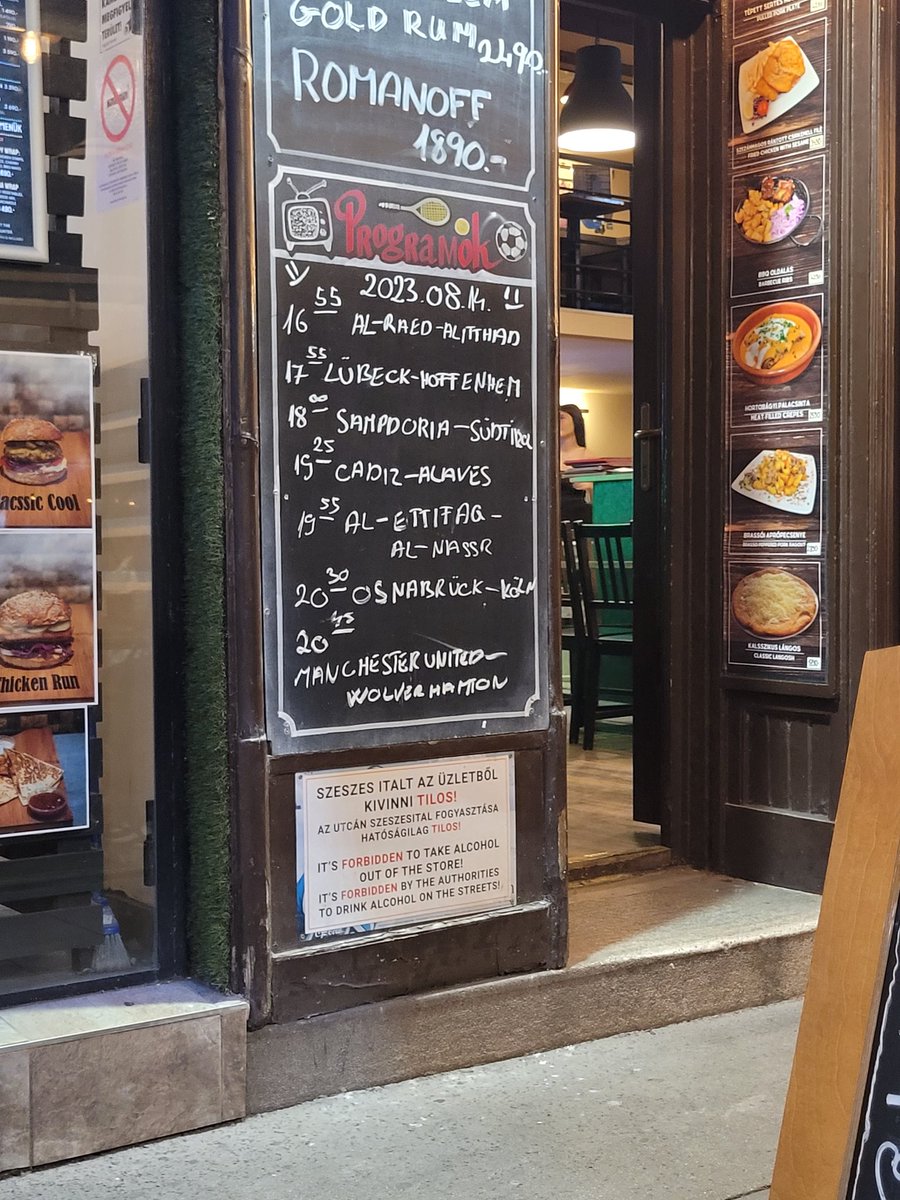 GOLD RUM 2490.-
ROMANOFF
1890.-
Programok
2023.08.14.
16 55 AL-RAED-ALITTHAD
17 55 LÜBECK-HOFFENHEM
18 00 SAMPDORIA-SÜDTIROL
19 25 CADIZ-ALAVES
19 55 AL-ETTIFAQ-
AL-NASSR
20 30 OSNABRÜCK-KÖLN
20 45
MANCHESTER UNITED-
WOLVERHAMTON
SZESZES ITALT AZ ÜZLETBŐL
KIVINNI TILOS!
AZ UTCÁN SZESZESITAL FOGYASZTÁSA
HATÓSÁGILAG TILOS!
IT'S FORBIDDEN TO TAKE ALCOHOL
OUT OF THE STORE!
IT'S FORBIDDEN BY THE AUTHORITIES
TO DRINK ALCOHOL ON THE STREETS!
acssic Cool
hicken Run
SZEZÁMMAGOS RÁNTOTT CSIRKEMELL FILÉ
FRIED CHICKEN WITH SESAME
BBQ OLDALAS
BARBECUE RIBS
HORTOBÁGYI PALACSINTA
MEAT-FILLED CREPES
BRASSÓI APRÓPECSENYE
KALSSZIKUS LÁNGOS
CLASSIC LANGOSH